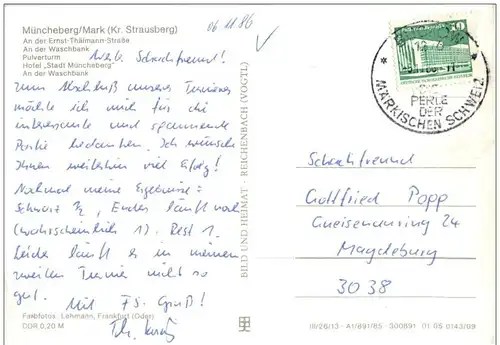 Müncheberg/Mark (Kr. Strausberg)
An der Ernst-Thälmann-Straße
An der Waschbank
Pulverturm
Hotel „Stadt Müncheberg"
An der Waschbank
06 11 86
Werter Schachfreund!
Zum Abschluß unseres Turnieres
möchte ich mich für die
interessante und spannende
Partie bedanken. Ich wünsche
Ihnen weiterhin viel Erfolg!
Nochmal meine Ergebnisse:
Schwarz ½, läuft noch
(wahrscheinlich 1). Rest 1.
Leider läuft es in meinem
zweiten Turnier nicht so
gut.
Mit FS. Gruß!
Farbfotos: Lehmann, Frankfurt (Oder)
DDR 0,20 M
BILD UND HEIMAT · REICHENBACH (VOGTL)
PERLE
DER
MÄRKISCHEN SCHWEIZ
Schachfreund
Gottfried Popp
Gneisenauring 24
Magdeburg
3038
III/26/13 · A1/891/85 · 300891